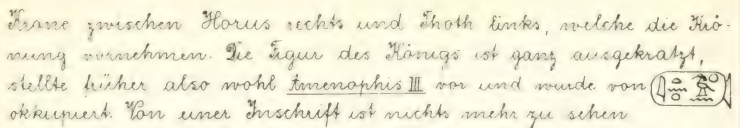 Krone zwischen Horus rechts und Thoth links, welche die Krö-
nung vornehmen. Die Figur des Königs ist ganz ausgekratzt,
stellte früher also wohl Amenophis III vor und wurde von
okkupiert. Von einer Inschrift ist nichts mehr zu sehen